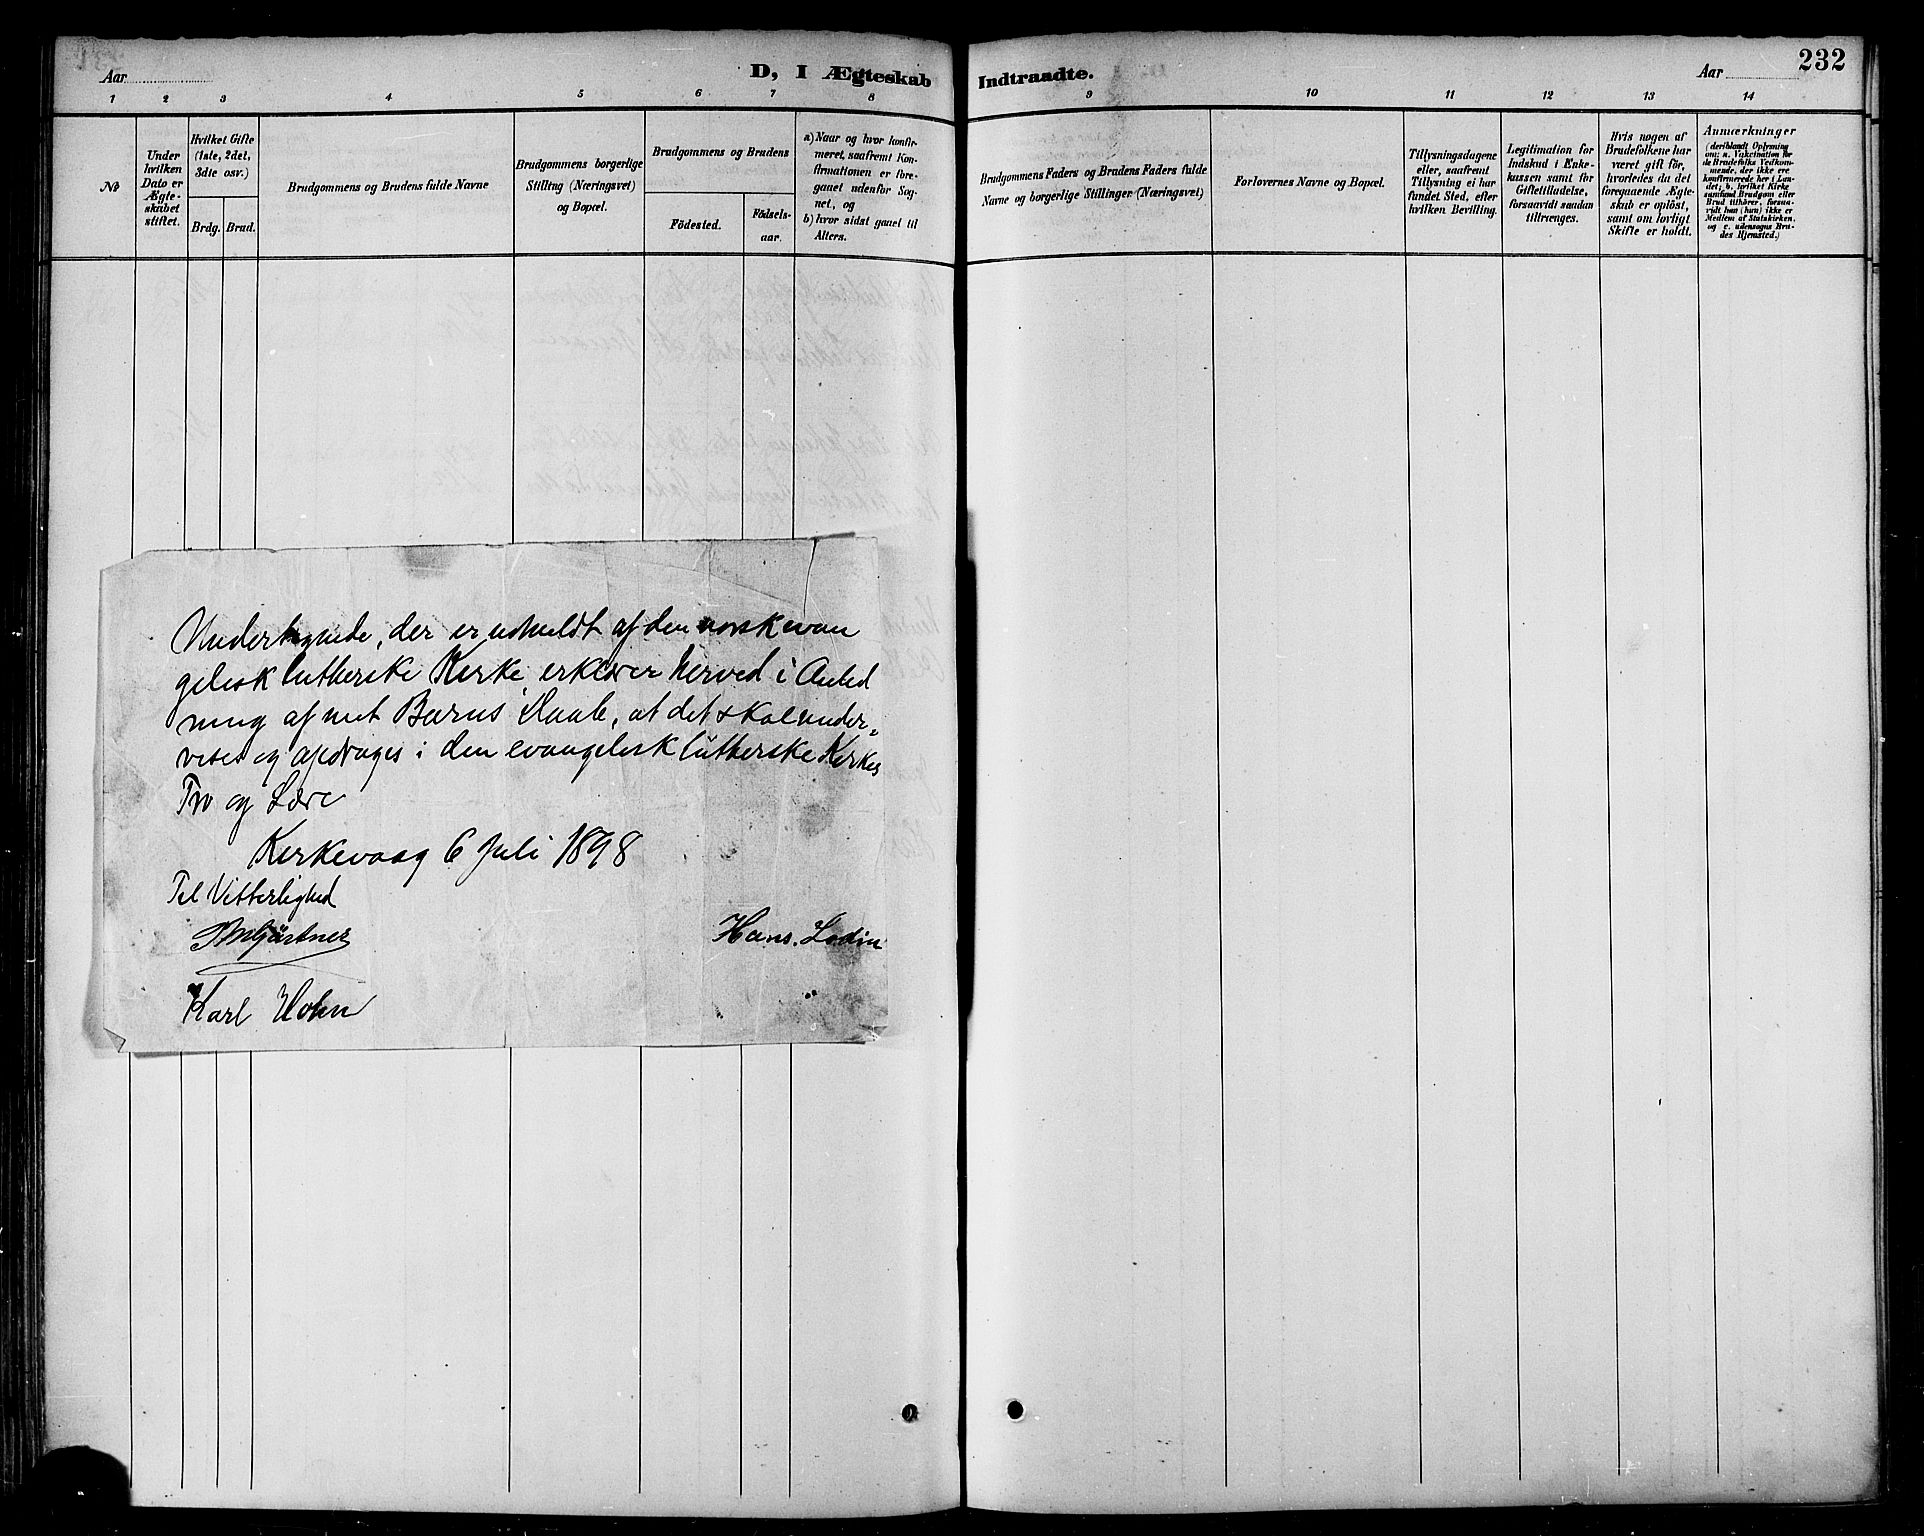 Aar
D, I Ægteskab
Indtraadte.
Aar
232
1 2 3 4 5 6 7 8 9 10 11 12 13 14
№
Under
hvilken
Dato er
Ægte-
skabet
stiftet.
Hvilket Gifte
(1ste, 2det,
3dte osv.)
Brdg. Brud.
Brudgommens og Brudens fulde Navne
Brudgommens borgerlige
Stilling (Næringsvei)
og Bopæl.
Brudgommens og Brudens
Födested.
Födsels-
aar.
a) Naar og hvor konfir-
meret, saafremt Kon-
firmationen er fore-
gaaet udenfor Sog-
net, og
b) hvor sidst gaaet til
Alters.
Brudgommens Faders og Brudens Faders fulde
Navne og borgerlige Stillinger (Næringsvei)
Forlovernes Navne og Bopæl.
Tillysningsdagene
eller, saafremt
Tillysning ei har
fundet Sted, efter
hvilken Bevilling.
Legitimation for
Indskud i Enke-
kassen samt for
Giftetilladelse,
forsaavidt saadan
tiltrænges.
Hvis nogen af
Brudefolkene har
været gift för,
hvorledes da det
foregaaende Ægte-
skab er oplöst,
samt om lovligt
Skifte er holdt.
Anmærkninger
(deriblandt Oplysning
om: a. Vakcination for
de Brudefolks Vedkom-
mende, der ikke ere
konfirmerede her i Lan-
det; b. hvilket Kirke
samfund Brudgom eller
Brud tilhörer, forsaa-
vidt han (hun) ikke er
Medlem af Statskirken,
og c. udensogns Bru-
des Hjemsted.)
Undertegnede, der er udmeldt af den norsk evan
gelisk lutherske Kirke, erklærer herved i Anled
ning af mit Barns Daab, at det skal under-
vises og opdrages i den evangelisk lutherske Kirkes
Tro og Lære
Kirkevaag 6 Juli 1898
Til Vitterlighed
Gärtner
Hans. Lodin
Karl Hohn